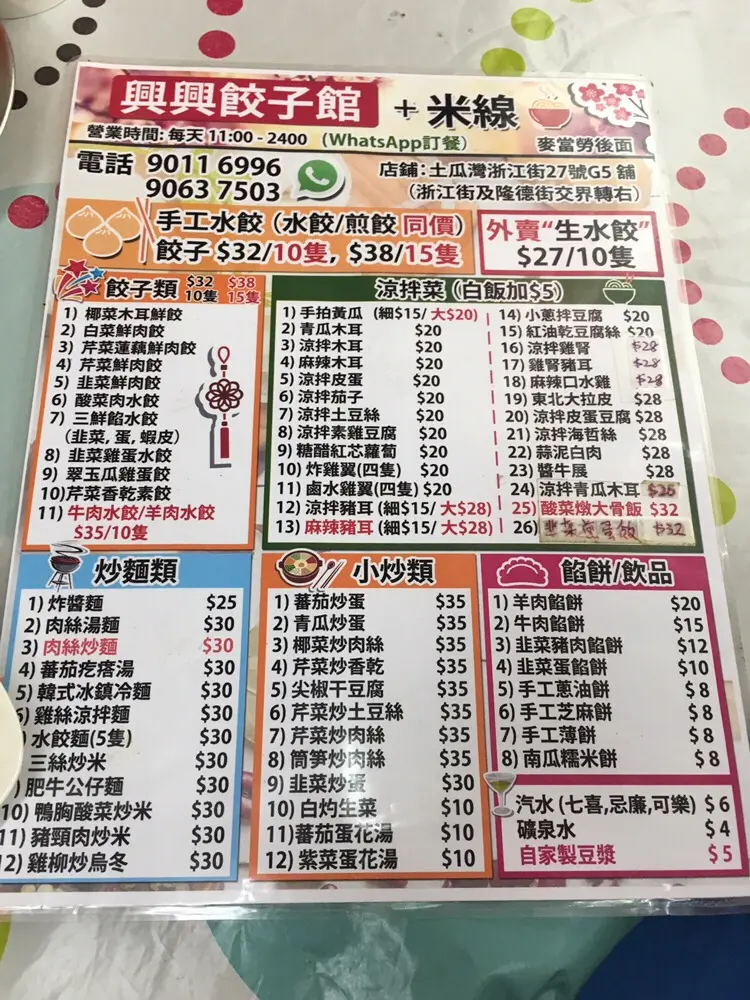 興興餃子館 + 米線
營業時間: 每天 11:00 - 2400 (WhatsApp訂餐) 麥當勞後面
電話 9011 6996
9063 7503
店鋪：土瓜灣浙江街27號G5 舖
（浙江街及隆德街交界轉右）
手工水餃（水餃/煎餃 同價）
餃子 $32/10隻, $38/15隻
外賣“生水餃”
$27/10隻
餃子類 $32 10隻 $38 15隻
1) 椰菜木耳鮮餃
2) 白菜鮮肉餃
3) 芹菜蓮藕鮮肉餃
4) 芹菜鮮肉餃
5) 韭菜鮮肉餃
6) 酸菜肉水餃
7) 三鮮餡水餃
（韭菜, 蛋, 蝦皮）
8) 韭菜雞蛋水餃
9) 翠玉瓜雞蛋餃
10)芹菜香乾素餃
11) 牛肉水餃/羊肉水餃
$35/10隻
涼拌菜（白飯加$5）
1) 手拍黃瓜（細$15/ 大$20）
2) 青瓜木耳 $20
3) 涼拌木耳 $20
4) 麻辣木耳 $20
5) 涼拌皮蛋 $20
6) 涼拌茄子 $20
7) 涼拌土豆絲 $20
8) 涼拌素雞豆腐 $20
9) 糖醋紅芯蘿蔔 $20
10) 炸雞翼(四隻) $20
11) 鹵水雞翼(四隻) $20
12) 涼拌豬耳 (細$15/ 大$28)
13) 麻辣豬耳 (細$15/ 大$28)
14) 小蔥拌豆腐 $20
15) 紅油乾豆腐絲 $20
16) 涼拌雞腎 $28
17) 雞腎豬耳 $28
18) 麻辣口水雞 $28
19) 東北大拉皮 $28
20) 涼拌皮蛋豆腐 $28
21) 涼拌海哲絲 $28
22) 蒜泥白肉 $28
23) 醬牛展 $28
24) 涼拌青瓜木耳
25) 酸菜燉大骨飯 $32
26) $32
炒麵類
1) 炸醬麵 $25
2) 肉絲湯麵 $30
3) 肉絲炒麵 $30
4) 蕃茄疙瘩湯 $30
5) 韓式冰鎮冷麵 $30
6) 雞絲涼拌麵 $30
) 水餃麵(5隻) $30
三絲炒米 $30
) 肥牛公仔麵 $30
10) 鴨胸酸菜炒米 $30
11) 豬頸肉炒米 $30
12) 雞柳炒烏冬 $30
小炒類
1) 蕃茄炒蛋 $35
2) 青瓜炒蛋 $35
3) 椰菜炒肉絲 $35
4) 芹菜炒香乾 $35
5) 尖椒干豆腐 $35
6) 芹菜炒土豆絲 $35
7) 芹菜炒肉絲 $35
8) 筒笋炒肉絲 $35
9) 韭菜炒蛋 $30
10) 白灼生菜 $10
11)蕃茄蛋花湯 $10
12) 紫菜蛋花湯 $10
餡餅/飲品
1) 羊肉餡餅 $20
2) 牛肉餡餅 $15
3) 韭菜豬肉餡餅 $12
4) 韭菜蛋餡餅 $10
5) 手工蔥油餅 $ 8
6) 手工芝麻餅 $ 8
7) 手工薄餅 $ 8
8) 南瓜糯米餅 $ 8
汽水 (七喜,忌廉,可樂) $ 6
礦泉水 $ 4
自家製豆漿 $ 5